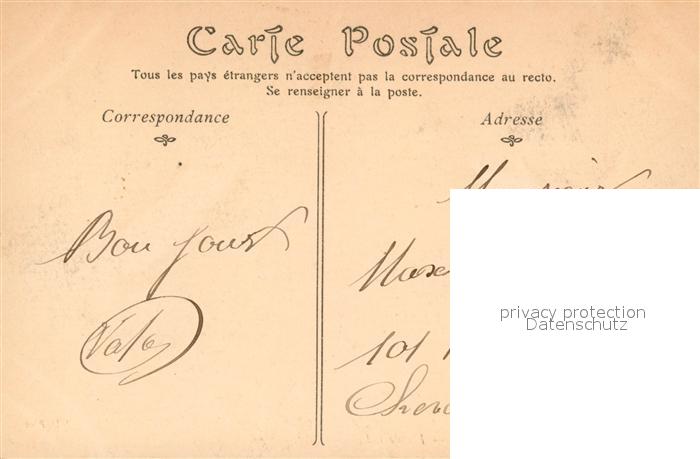 Carte Postale
Tous les pays étrangers n'acceptent pas la correspondance au recto.
Se renseigner à la poste.
Correspondance
Adresse
Bon jour
101
privacy protection
Datenschutz